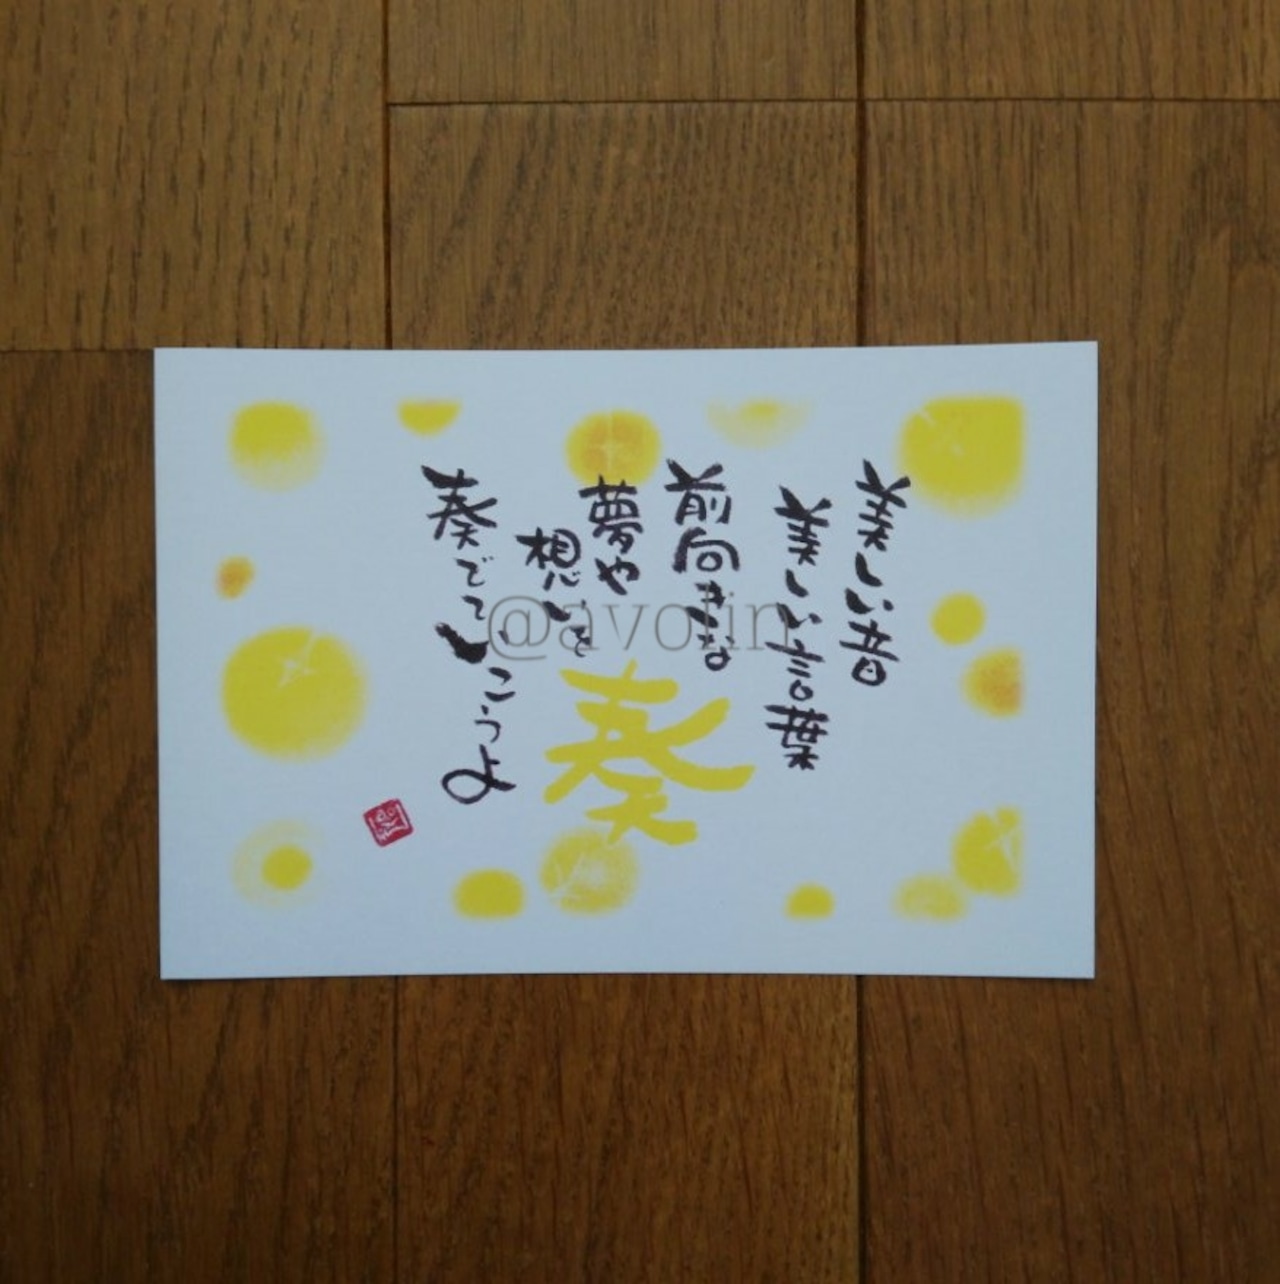 美しい音
美しい言葉
前向きな
夢や
想いを
奏
奏でて
いこうよ
@avolin